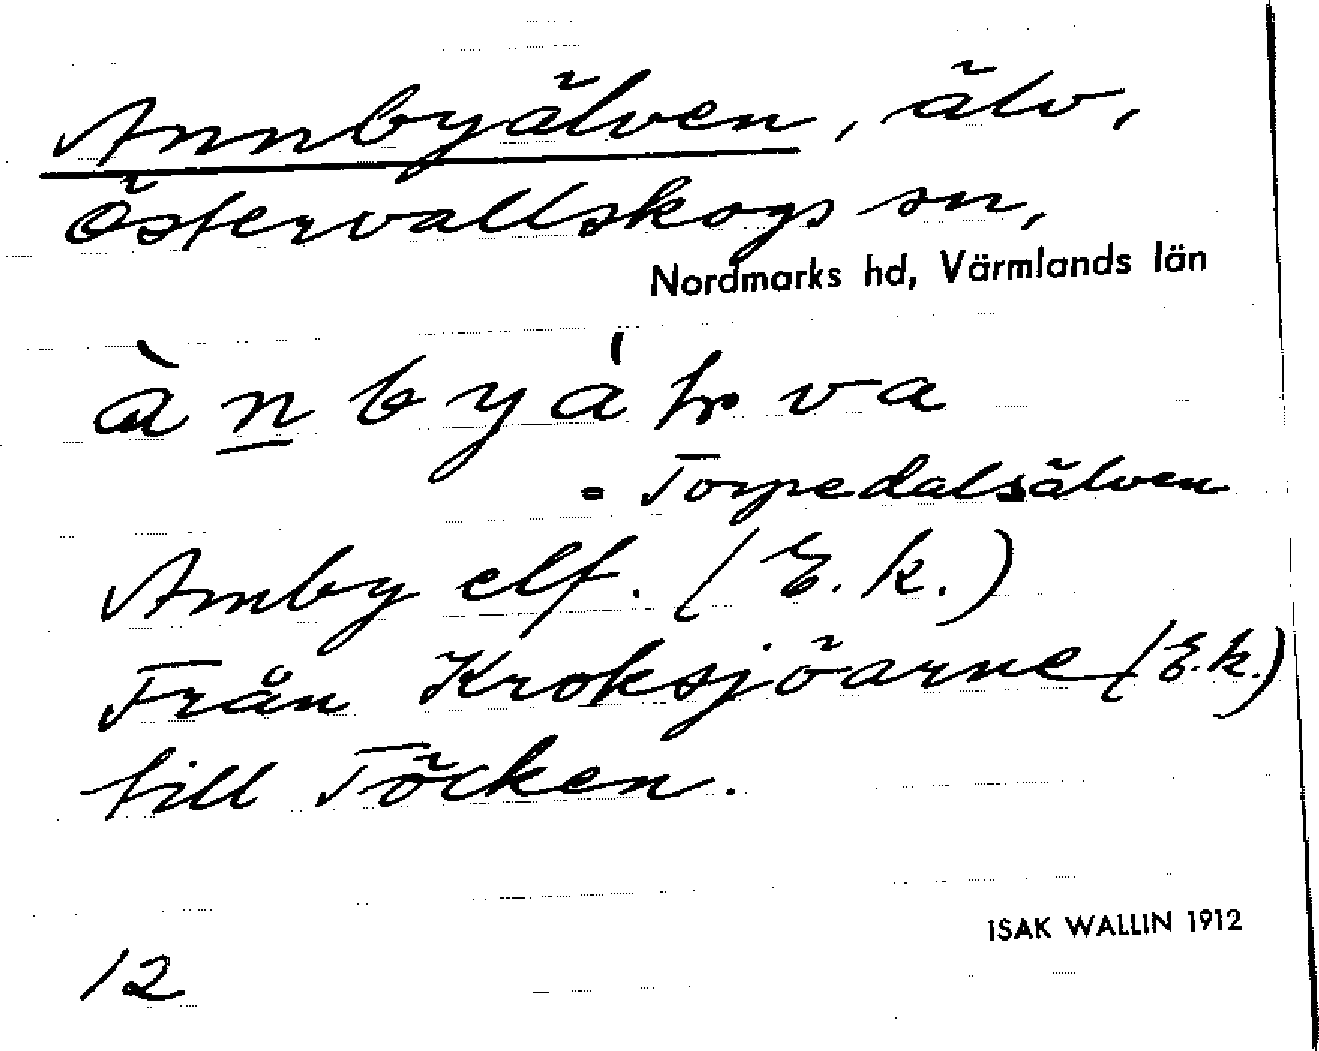 Annbyälven, älv,
Östervallskogs sn,
Nordmarks hd, Värmlands län
ànbyáƚva
= Torpedalsälven
Amby elf. (E.k.)
Från Kroksjöarne (E.k.)
till Töcken.
ISAK WALLIN 1912
12